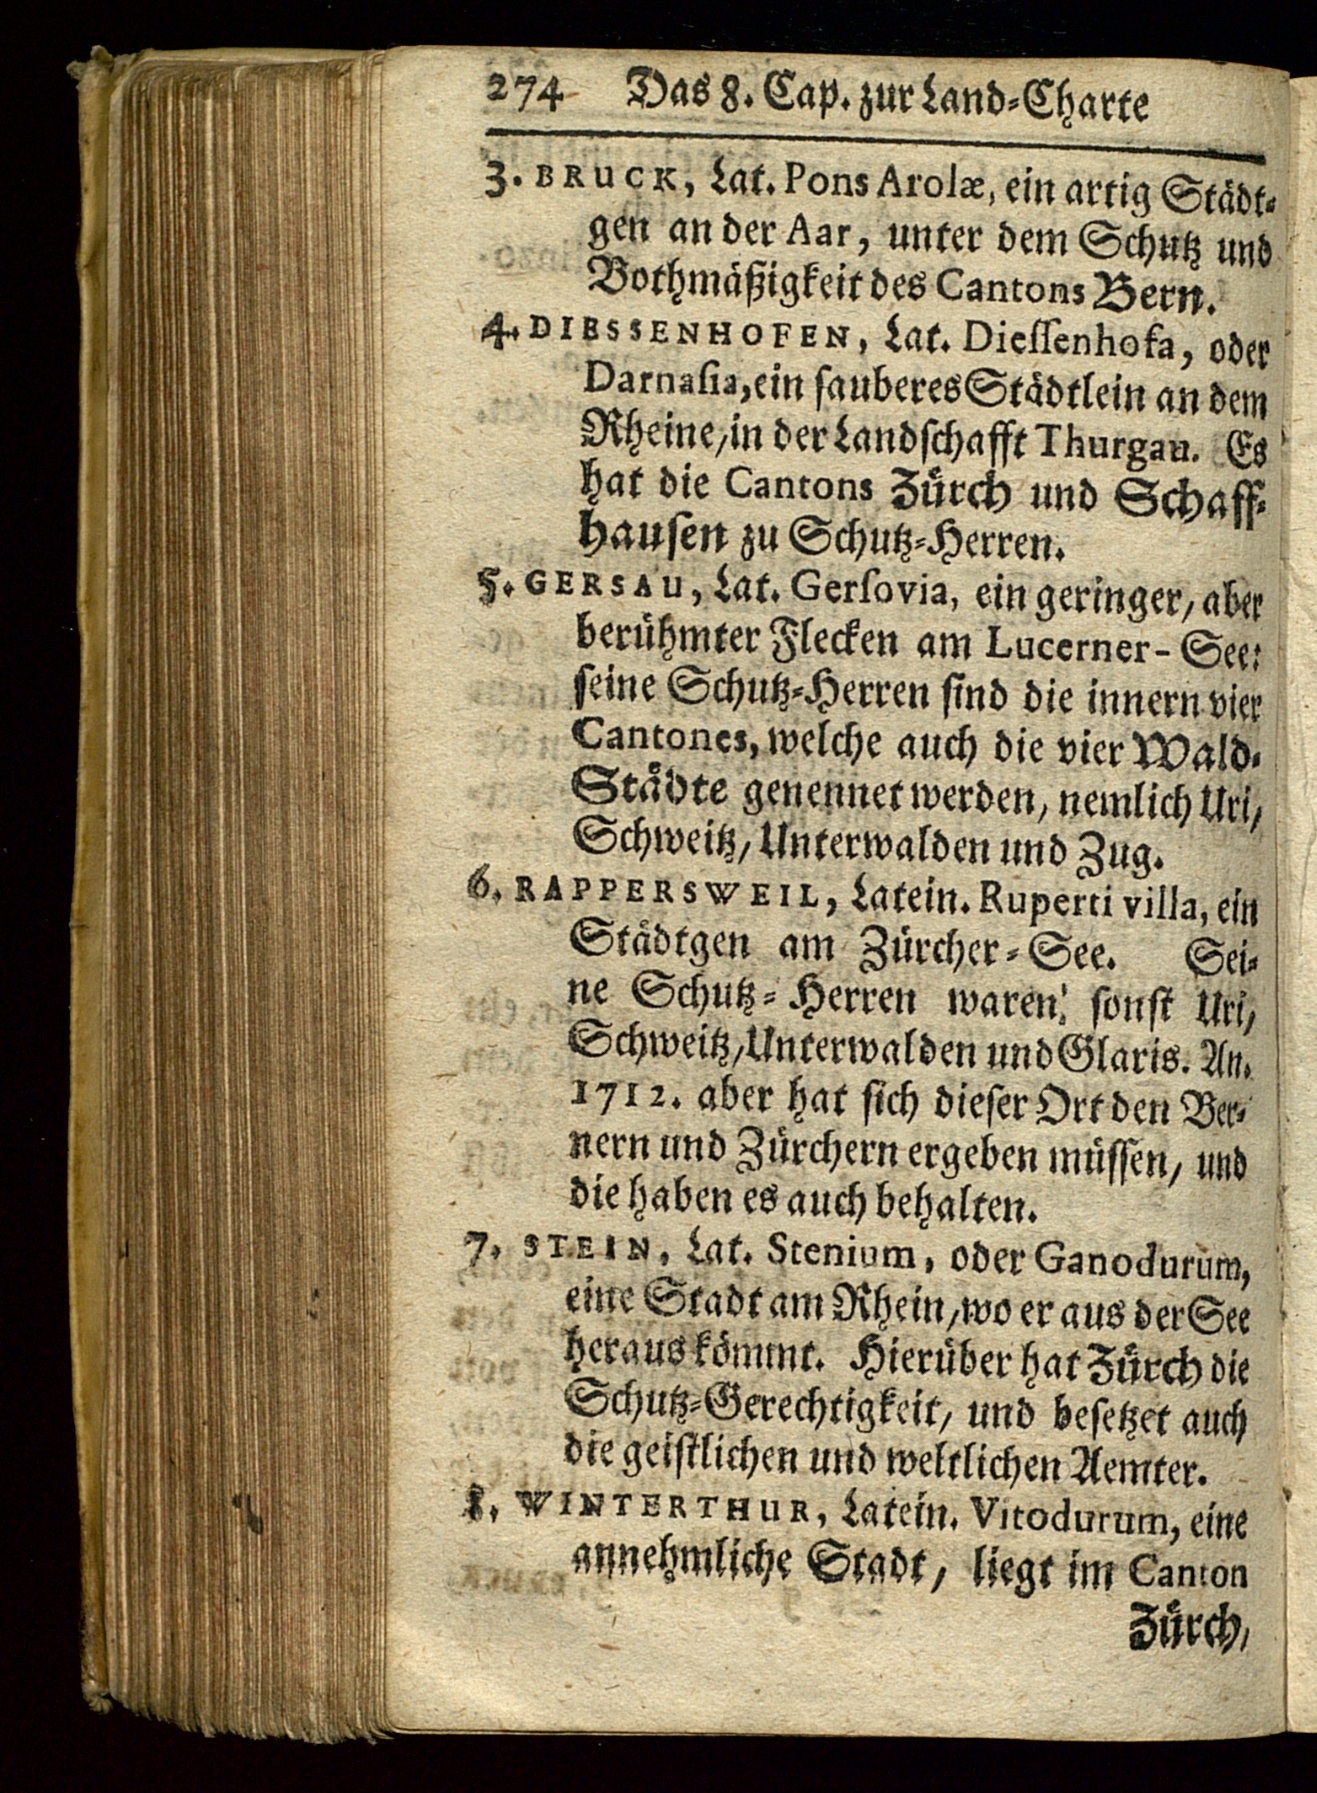 274 Das 8. Cap. zur Land-Charte
3. BRUCK, Lat. Pons Arolæ, ein artig Städt-
gen an der Aar, unter dem Schutz und
Bothmäßigkeit des Cantons Bern.
4. DIESSENHOFEN, Lat. Diessenhofa, oder
Darnasia, ein sauberes Städtlein an dem
Rheine, in der Landschafft Thurgau. Es
hat die Cantons Zürch und Schaff-
hausen zu Schutz-Herren.
5. GERSAU, Lat. Gersovia, ein geringer, aber
berühmter Flecken am Lucerner-See:
seine Schutz-Herren sind die innern vier
Cantones, welche auch die vier Wald-
Städte genennet werden, nemlich Uri,
Schweitz, Unterwalden und Zug.
6. RAPPERSWEIL, Latein. Ruperti villa, ein
Städtgen am Zürcher-See. Sei-
ne Schutz-Herren waren sonst Uri,
Schweitz, Unterwalden und Glaris. An.
1712. aber hat sich dieser Ort den Ber-
nern und Zürchern ergeben müssen, und
die haben es auch behalten.
7. STEIN, Lat. Stenium, oder Ganodurum,
eine Stadt am Rhein, wo er aus der See
heraus kömmt. Hierüber hat Zürch die
Schutz-Gerechtigkeit, und besetzet auch
die geistlichen und weltlichen Aemter.
8. WINTERTHUR, Latein. Vitodurum, eine
annehmliche Stadt, liegt im Canton
Zürch,